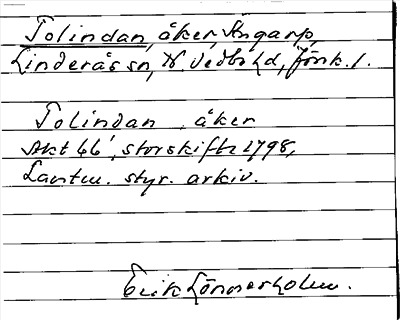 Tolindan, åker, Angarp,
Linderås sn, N. Vedbo hd, Jönk. l.
Tolindan, åker
Akt 66, storskifte 1798,
Lantm. styr. arkiv.
Erik Lönnerholm.